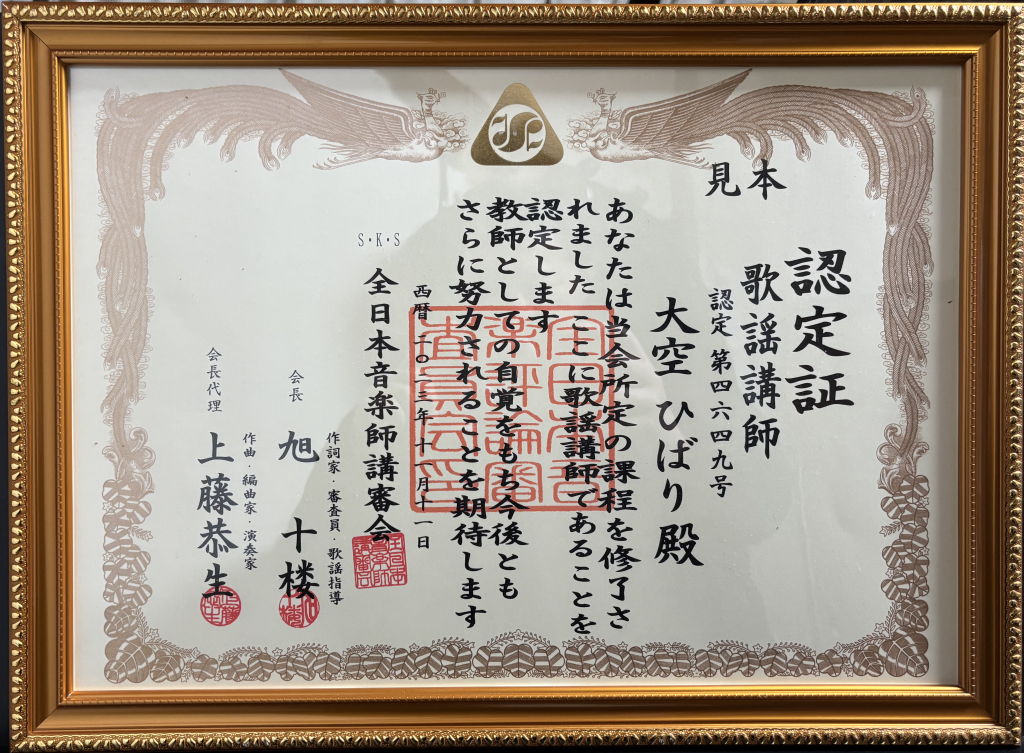 見本
認定証
歌謡講師
認定 第四六四九号
大空 ひばり殿
あなたは当会所定の課程を修了さ
れました ここに歌謡講師であることを
認定します
教師としての自覚をもち今後とも
さらに努力されることを期待します
西暦 二〇二三年十一月十一日
S・K・S
全日本音楽師講審会
作詞家・審査員・歌謡指導
会長 旭 十楼
作曲・編曲家・演奏家
会長代理 上藤恭生